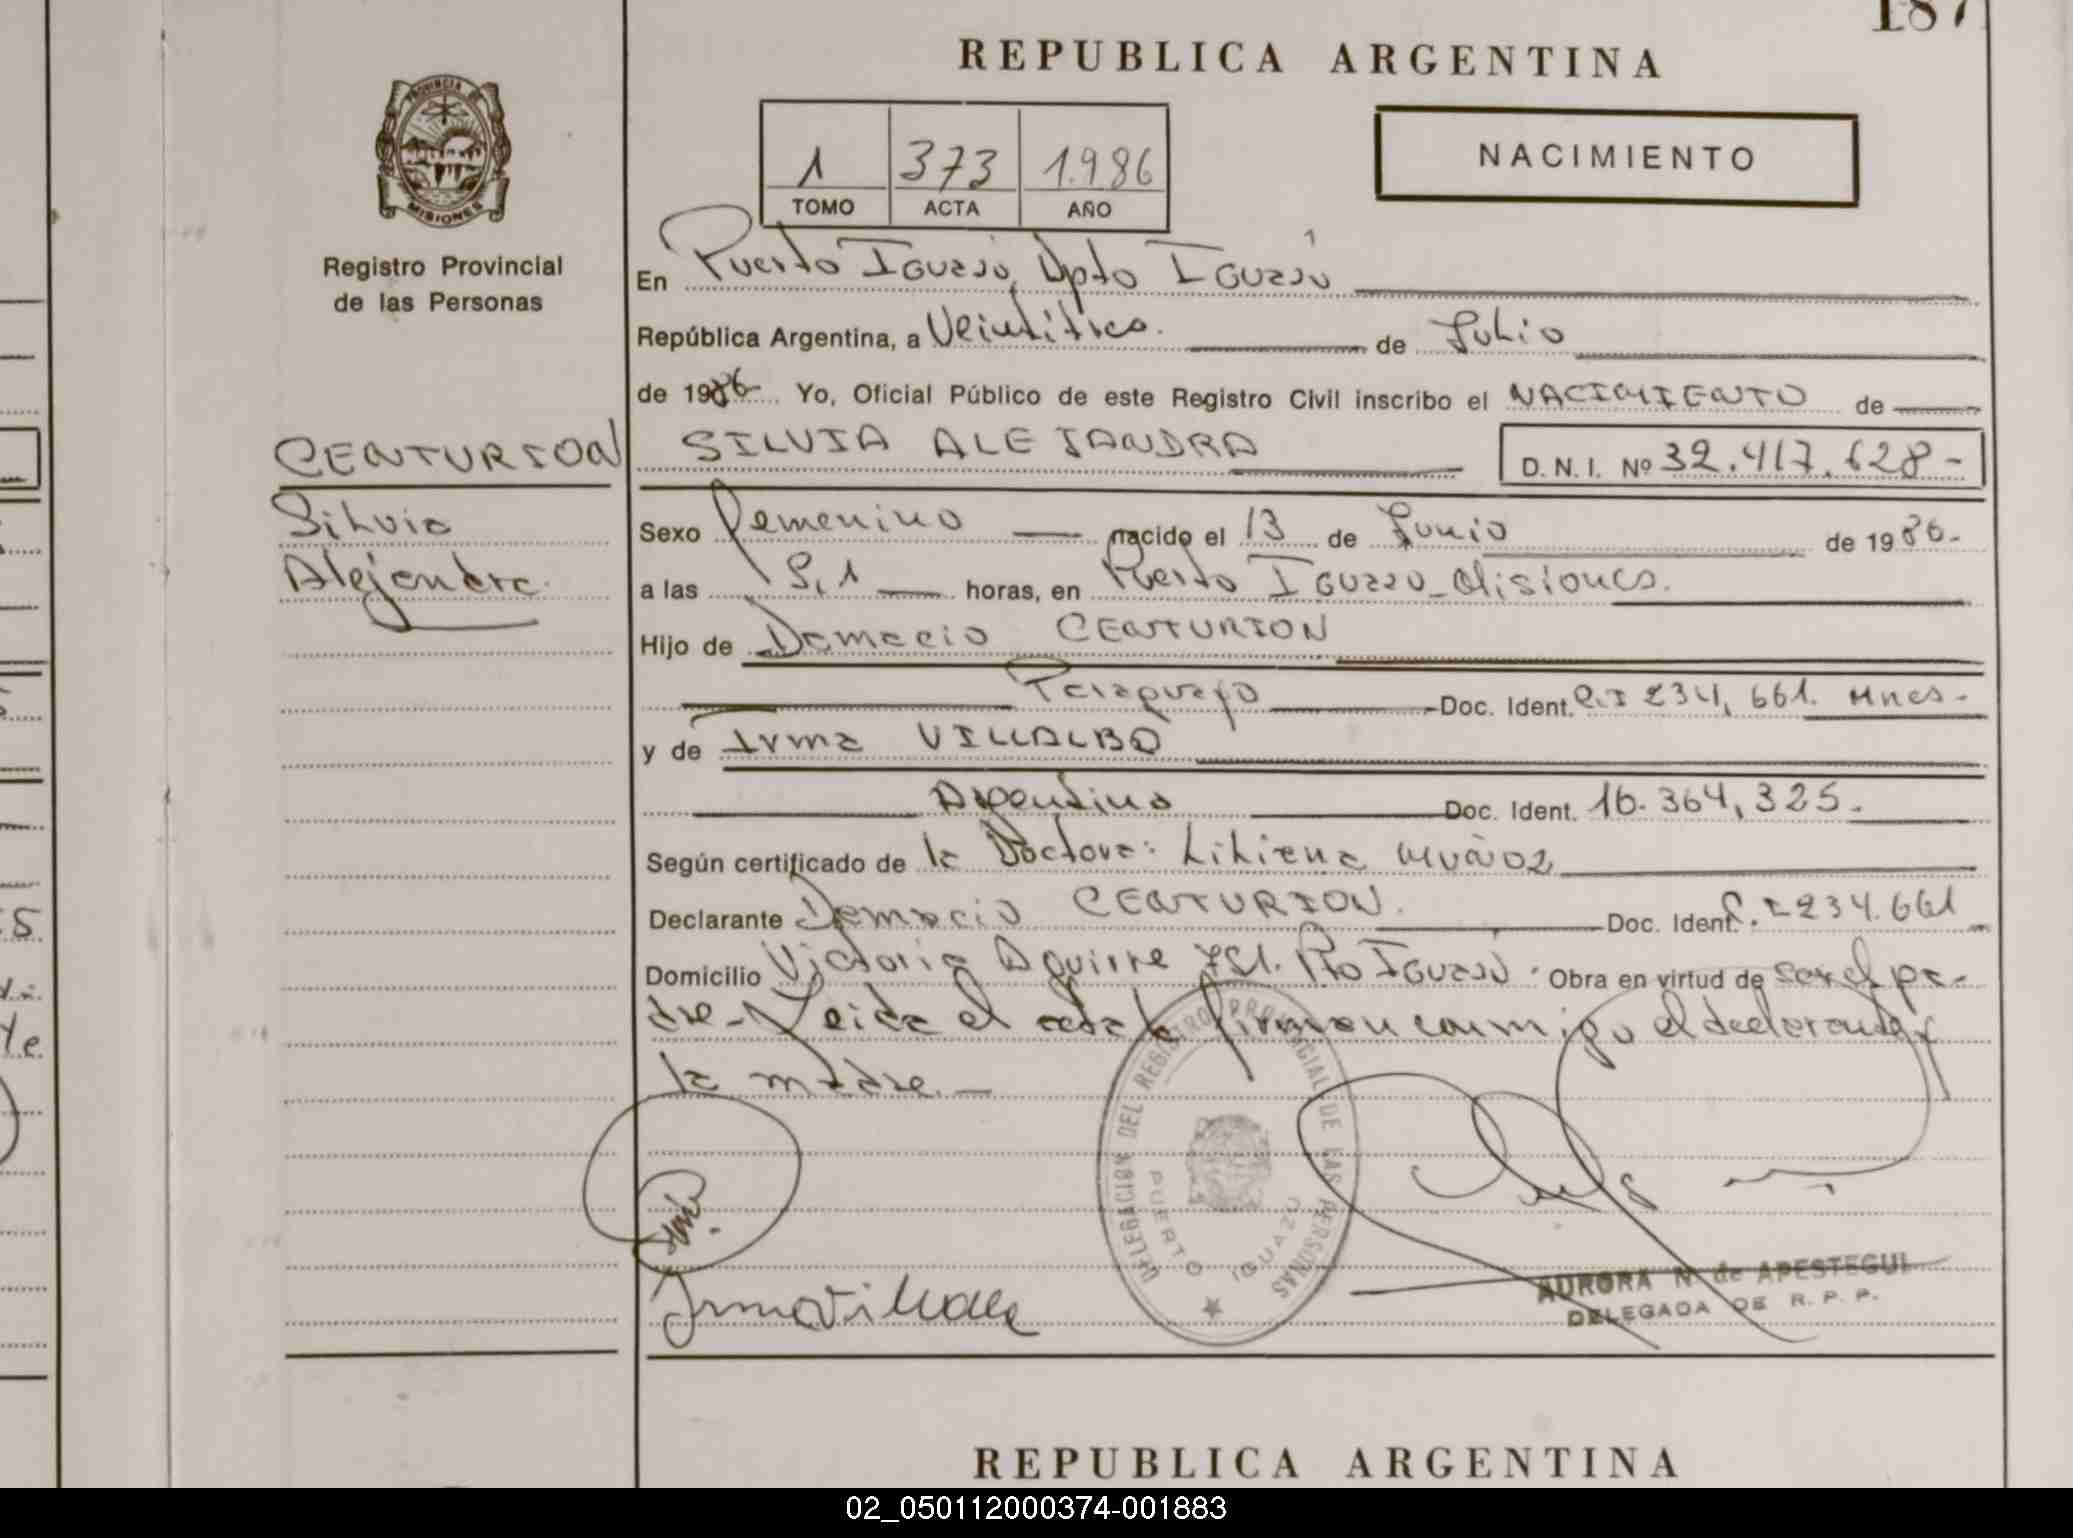 187
REPUBLICA ARGENTINA
PROVINCIA DE
MISIONES
Registro Provincial
de las Personas
1 373 1.986
TOMO ACTA AÑO
NACIMIENTO
En Puerto Iguazú, Dpto Iguazú
República Argentina, a Veintitres. de Julio
de 1986 Yo, Oficial Público de este Registro Civil inscribo el NACIMIENTO de
CENTURION
SILVIA ALEJANDRA D. N. I. Nº 32.417.628-
Silvia
Alejandra
Sexo Femenino nacido el 13 de Junio de 1986-
a las horas, en Puerto Iguazu_Misiones.
Hijo de Damacio CENTURION
Paraguayo Doc. Ident. C.I 234,661. Mnes-
y de Irma VILLALBA
Argentina Doc. Ident. 16.364,325.
Según certificado de la Doctora: Liliana Muñoz
Declarante Damacio CENTURION. Doc. Ident. C.I 234.661
Domicilio Victoria Aguirre Pto Iguazú. Obra en virtud de ser el pa-
dre- Leida el acta la firman conmigo el declarante y
la madre.-
DELEGACION DEL REGISTRO PROVINCIAL DE LAS PERSONAS
PUERTO IGUAZU
Irma Villalba
AURORA N. de APESTEGUI
DELEGADA DE R. P. P.
REPUBLICA ARGENTINA
02_050112000374-001883